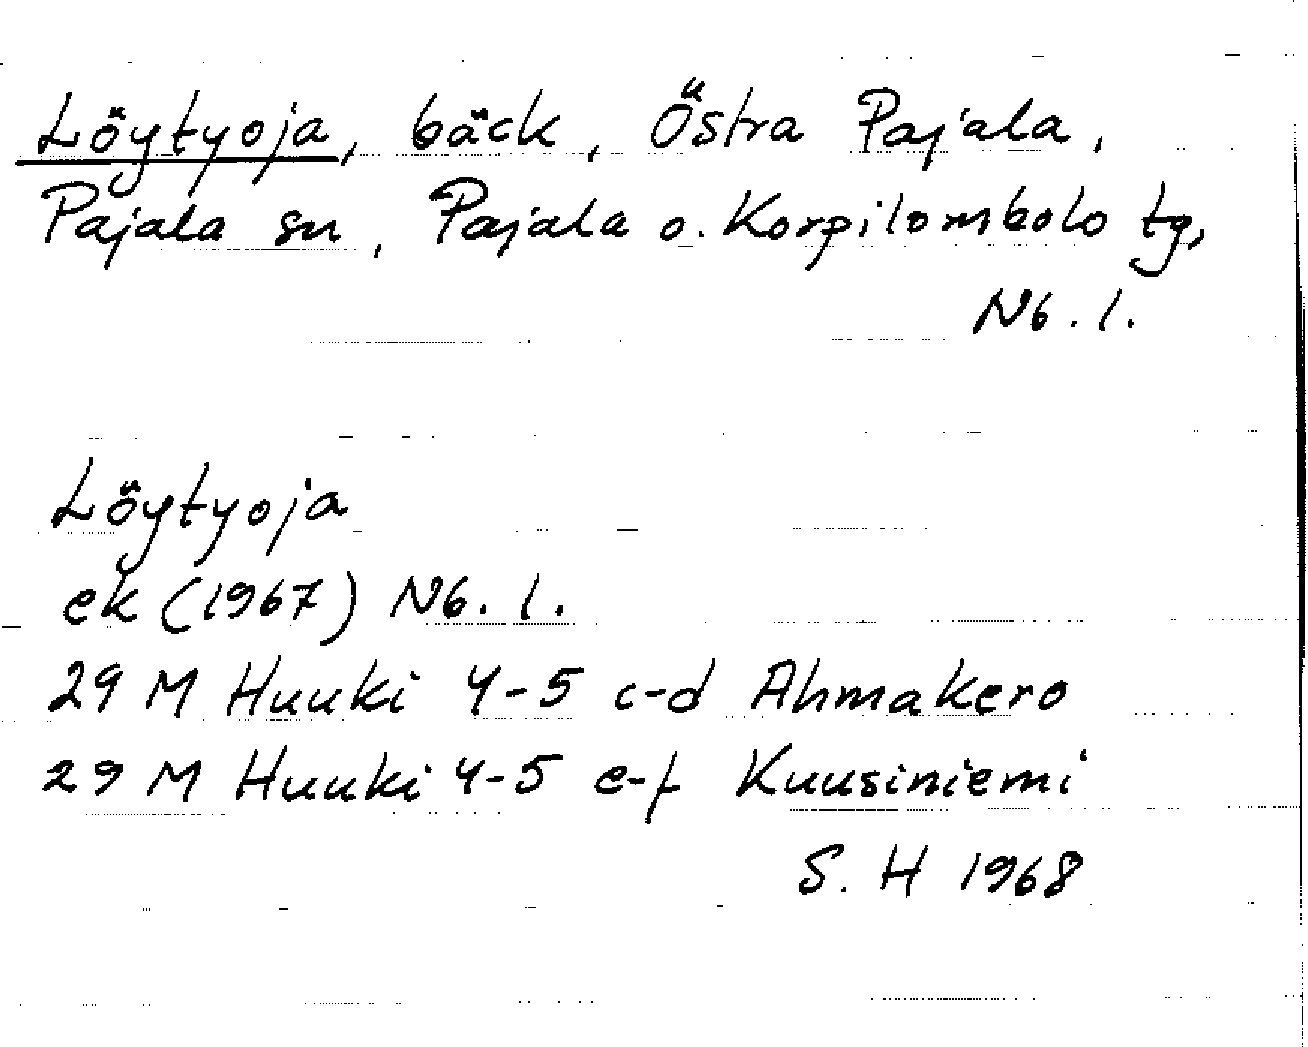 Löytyoja, bäck, Östra Pajala,
Pajala sn, Pajala o. Korpilombolo tg,
Nb. l.
Löytyoja
ek (1967) Nb. l.
29 M Huuki 4-5 c-d Ahmakero
29 M Huuki 4-5 e-f Kuusiniemi
S. H 1968